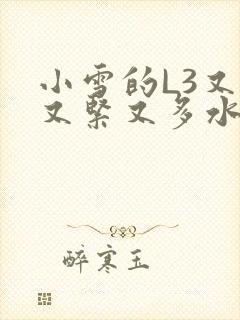 小雪的L3又
又紧又多水
醉寒玉